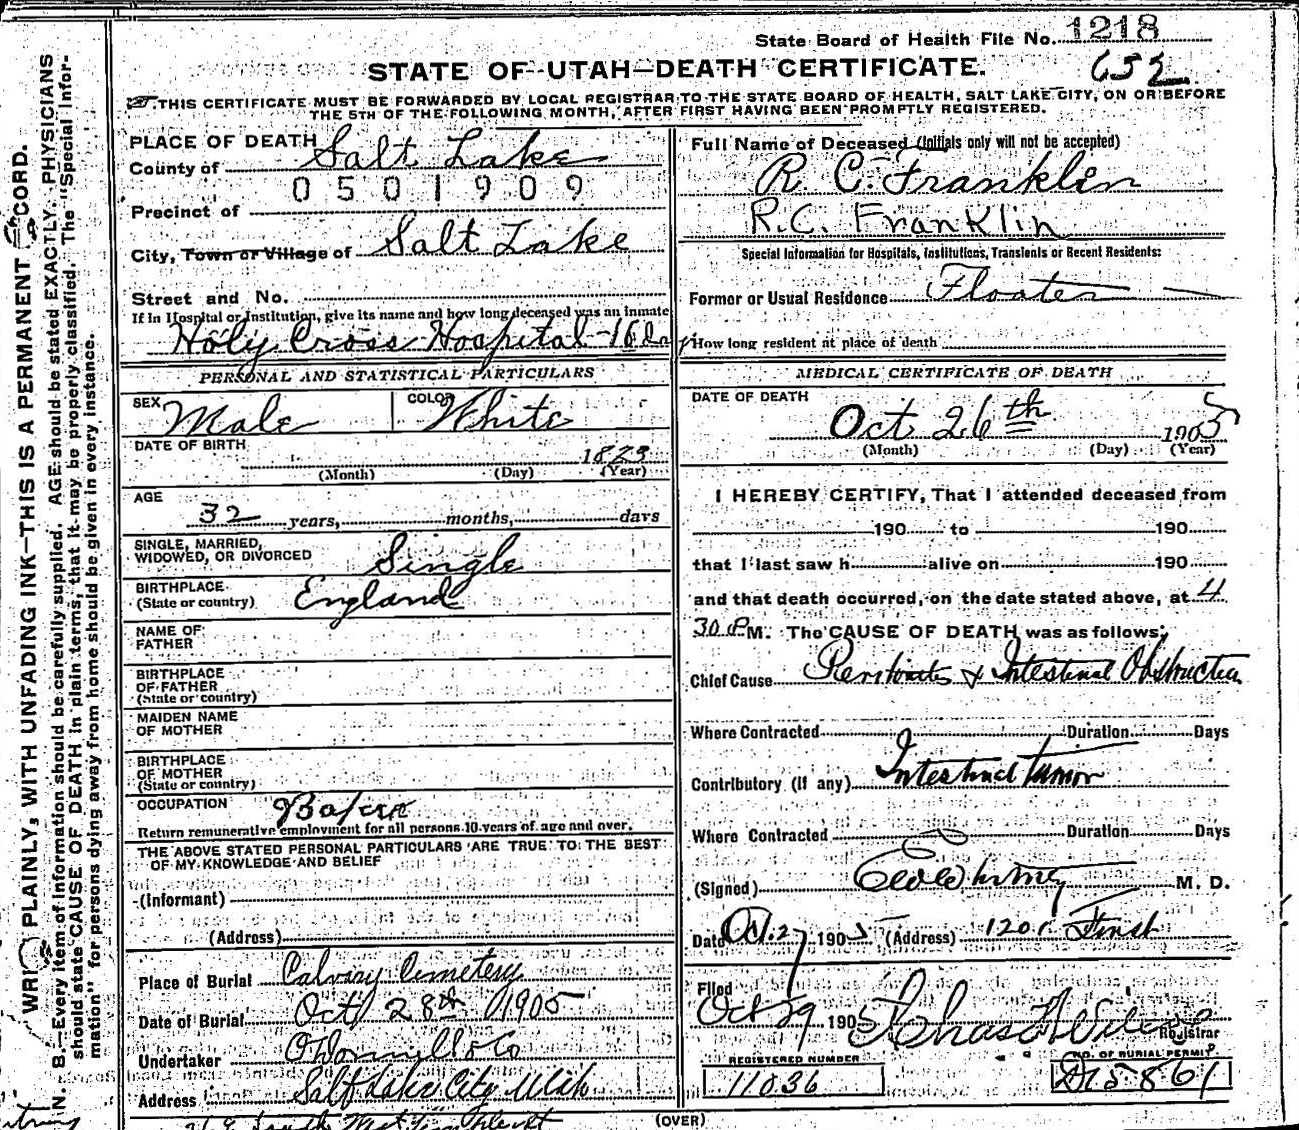 State Board of Health File No. 1218
652
STATE OF UTAH—DEATH CERTIFICATE.
THIS CERTIFICATE MUST BE FORWARDED BY LOCAL REGISTRAR TO THE STATE BOARD OF HEALTH, SALT LAKE CITY, ON OR BEFORE
THE 5TH OF THE FOLLOWING MONTH, AFTER FIRST HAVING BEEN PROMPTLY REGISTERED.
PLACE OF DEATH
County of Salt Lake
0501909
Precinct of
City, Town or Village of Salt Lake
Street and No.
If in Hospital or Institution, give its name and how long deceased was an inmate
Holy Cross Hospital - 16 da
PERSONAL AND STATISTICAL PARTICULARS
SEX Male COLOR White
DATE OF BIRTH
1823
(Month) (Day) (Year)
AGE
32 years, months, days
SINGLE, MARRIED,
WIDOWED, OR DIVORCED Single
BIRTHPLACE
(State or country) England
NAME OF
FATHER
BIRTHPLACE
OF FATHER
(State or country)
MAIDEN NAME
OF MOTHER
BIRTHPLACE
OF MOTHER
(State or country)
OCCUPATION Baker
Return remunerative employment for all persons 10 years of age and over.
THE ABOVE STATED PERSONAL PARTICULARS ARE TRUE TO THE BEST
OF MY KNOWLEDGE AND BELIEF
(Informant)
(Address)
Place of Burial Calvary Cemetery
Date of Burial Oct 28th 1905
Undertaker O'Donnell & Co
Address Salt Lake City Utah
South West Temple
Full Name of Deceased (Initials only will not be accepted)
R. C. Franklin
R.C. Franklin
Special Information for Hospitals, Institutions, Transients or Recent Residents:
Former or Usual Residence Floater —
How long resident at place of death
MEDICAL CERTIFICATE OF DEATH
DATE OF DEATH
Oct 26th 1905
(Month) (Day) (Year)
I HEREBY CERTIFY, That I attended deceased from
190 to 190
that I last saw h alive on 190
and that death occurred, on the date stated above, at 4
30 P M. The CAUSE OF DEATH was as follows:
Chief Cause Peritonitis & Intestinal Obstruction
Where Contracted Duration Days
Contributory (if any) Intestinal tumor
Where Contracted Duration Days
(Signed) M. D.
Date Oct. 27 1905 (Address) First
Filed
Oct 29 1905 Chas Registrar
REGISTERED NUMBER
11036
NO. OF BURIAL PERMIT
D15861
(OVER)
WRITE PLAINLY, WITH UNFADING INK—THIS IS A PERMANENT RECORD.
N. B.—Every item of information should be carefully supplied. AGE should be stated EXACTLY. PHYSICIANS
should state CAUSE OF DEATH in plain terms, that it may be properly classified. The "Special Infor-
mation" for persons dying away from home should be given in every instance.